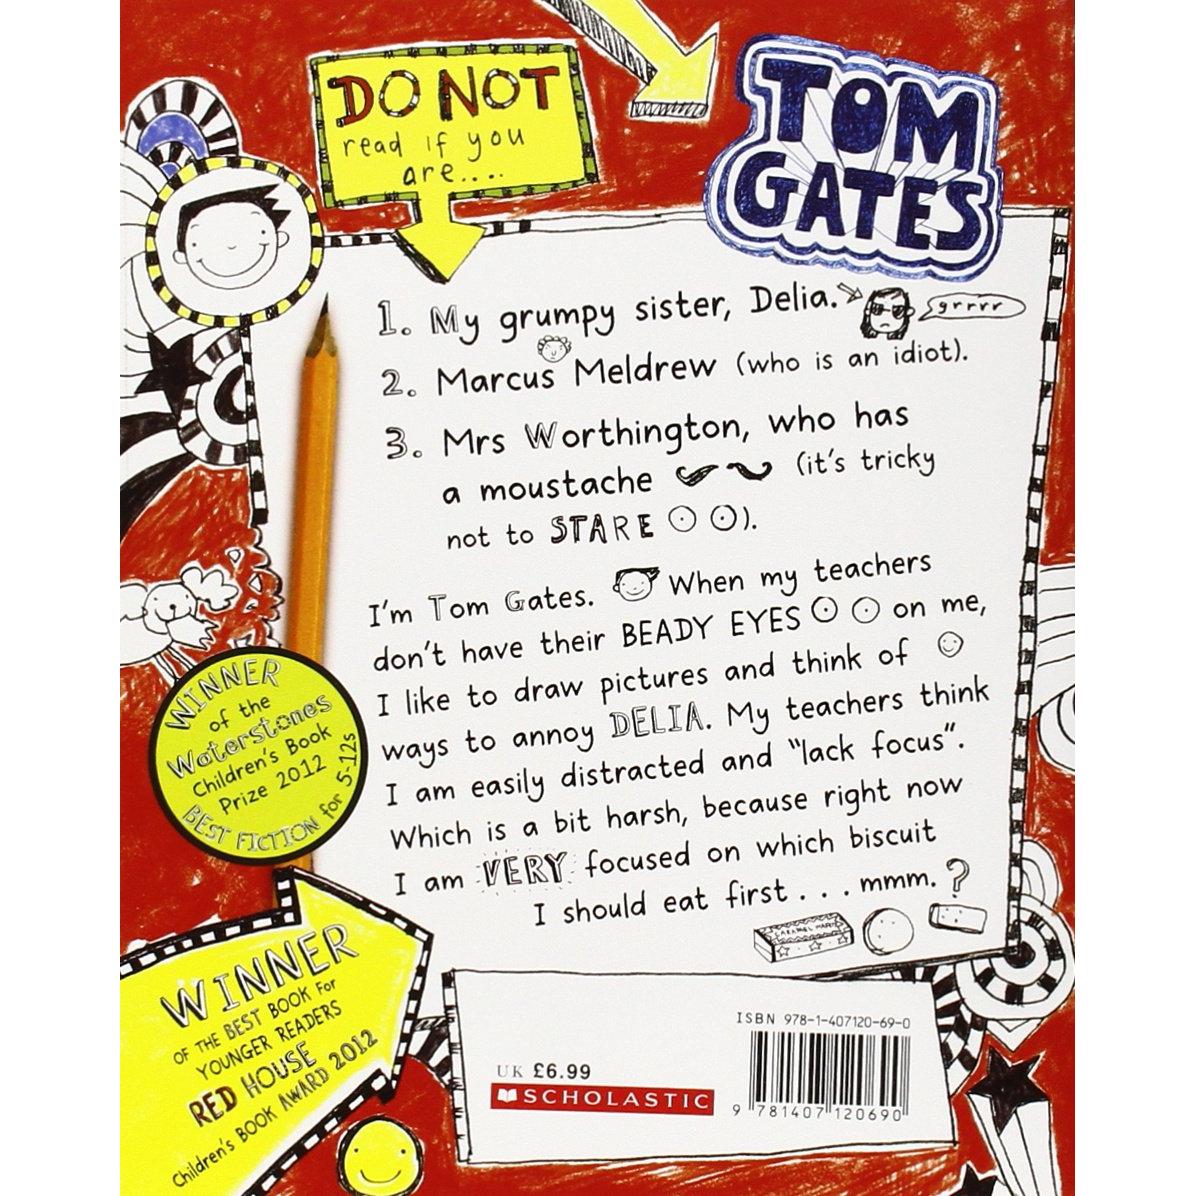 DO NOT
read if you
are....
TOM
GATES
1. My grumpy sister, Delia.
grrrr
2. Marcus Meldrew (who is an idiot).
3. Mrs Worthington, who has
a moustache (it's tricky
not to STARE).
I'm Tom Gates. When my teachers
don't have their BEADY EYES on me,
I like to draw pictures and think of
ways to annoy DELIA. My teachers think
I am easily distracted and "lack focus".
Which is a bit harsh, because right now
I am VERY focused on which biscuit
I should eat first . . . mmm. ?
WINNER
of the
Waterstones
Children's Book
Prize 2012
BEST FICTION for 5-12s
WINNER
OF THE BEST BOOK FOR
YOUNGER READERS
RED HOUSE
Children's BOOK AWARD 2012
ISBN 978-1-407120-69-0
UK £6.99
SCHOLASTIC
9 781407 120690